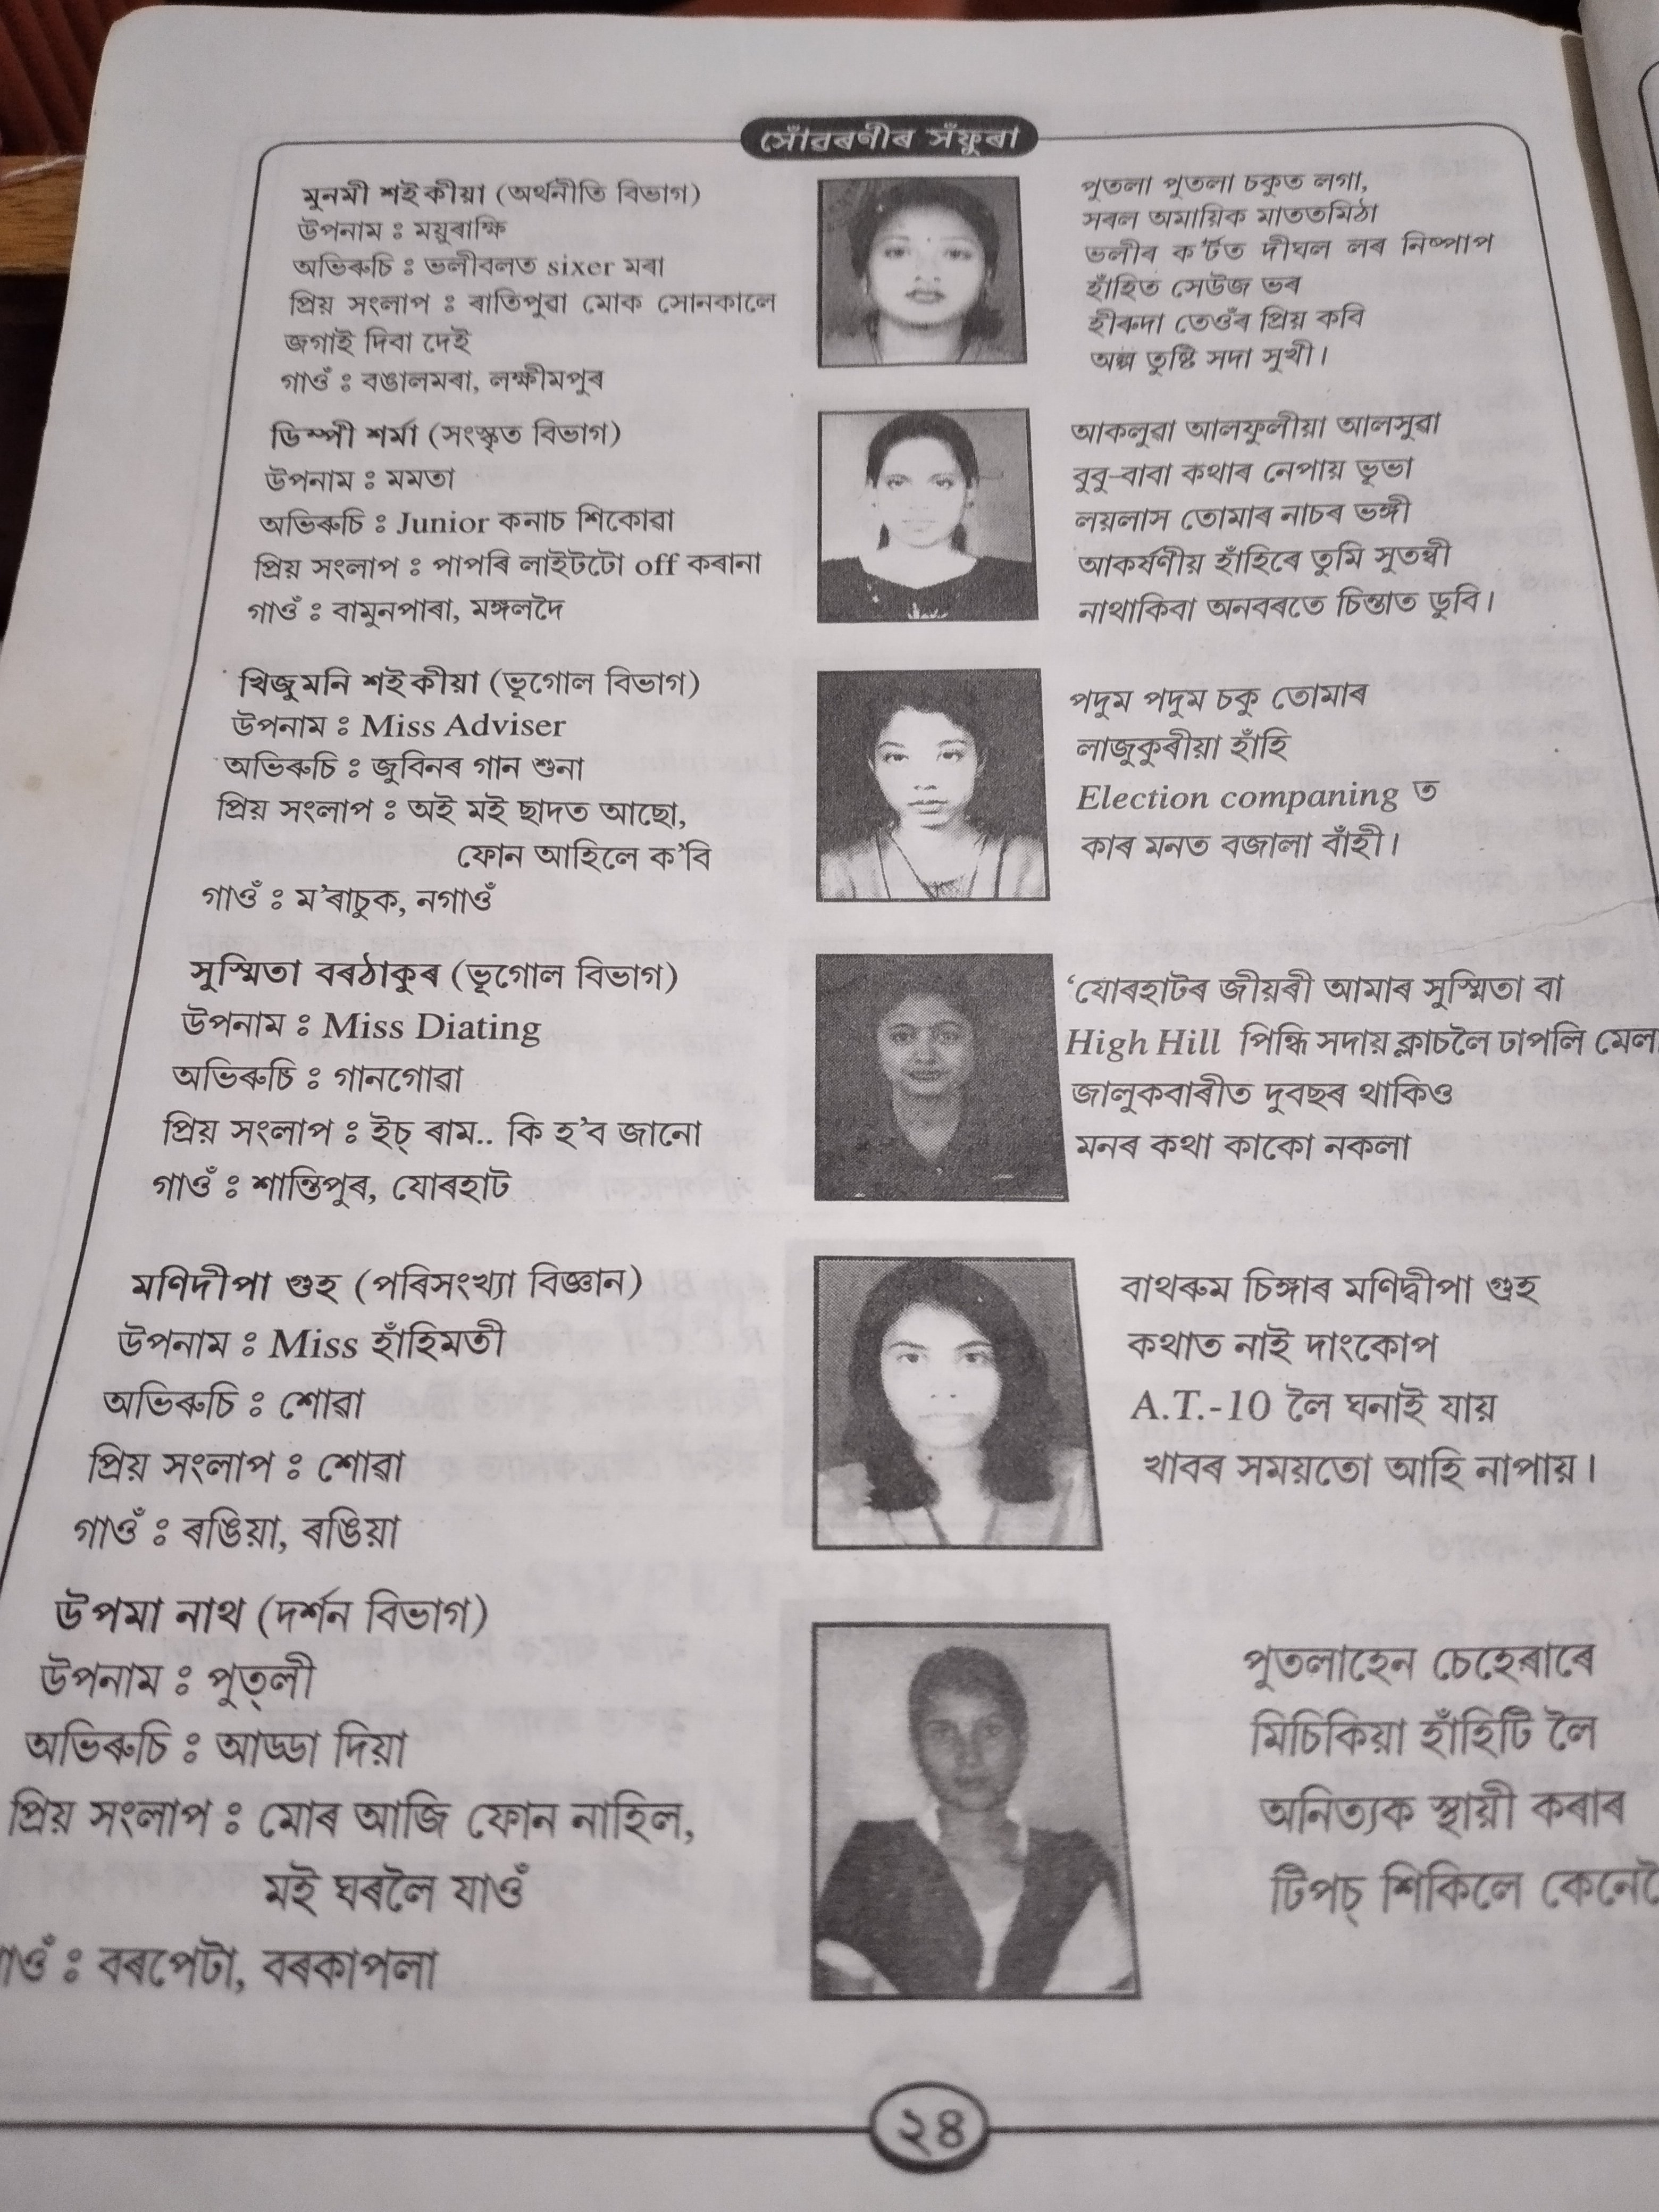 সোঁৱৰণীৰ সঁফুৰা
মুনমী শইকীয়া (অৰ্থনীতি বিভাগ)
উপনাম ঃ ময়ুৰাক্ষি
অভিৰুচি ঃ ভলীবলত sixer মৰা
প্ৰিয় সংলাপ ঃ ৰাতিপুৱা মোক সোনকালে
জগাই দিবা দেই
গাওঁ ঃ বঙালমৰা, লক্ষীমপুৰ
পুতলা পুতলা চকুত লগা,
সৰল অমায়িক মাততমিঠা
ভলীৰ ক'ৰ্টত দীঘল লৰ নিষ্পাপ
হাঁহিত সেউজ ভৰ
হীৰুদা তেওঁৰ প্ৰিয় কবি
অল্প তুষ্টি সদা সুখী।
ডিম্পী শৰ্মা (সংস্কৃত বিভাগ)
উপনাম ঃ মমতা
অভিৰুচি ঃ Junior কনাচ শিকোৱা
প্ৰিয় সংলাপ ঃ পাপৰি লাইটটো off কৰানা
গাওঁ ঃ বামুনপাৰা, মঙ্গলদৈ
আকলুৱা আলফুলীয়া আলসুৱা
বুবু-বাবা কথাৰ নেপায় ভূভা
লয়লাস তোমাৰ নাচৰ ভঙ্গী
আকৰ্ষণীয় হাঁহিৰে তুমি সুতন্বী
নাথাকিবা অনবৰতে চিন্তাত ডুবি।
খিজুমনি শইকীয়া (ভূগোল বিভাগ)
উপনাম ঃ Miss Adviser
অভিৰুচি ঃ জুবিনৰ গান শুনা
প্ৰিয় সংলাপ ঃ অই মই ছাদত আছো,
ফোন আহিলে ক'বি
গাওঁ ঃ ম'ৰাচুক, নগাওঁ
পদুম পদুম চকু তোমাৰ
লাজুকুৰীয়া হাঁহি
Election companing ত
কাৰ মনত বজালা বাঁহী।
সুস্মিতা বৰঠাকুৰ (ভূগোল বিভাগ)
উপনাম ঃ Miss Diating
অভিৰুচি ঃ গানগোৱা
প্ৰিয় সংলাপ ঃ ইচ্ ৰাম.. কি হ'ব জানো
গাওঁ ঃ শান্তিপুৰ, যোৰহাট
‘যোৰহাটৰ জীয়ৰী আমাৰ সুস্মিতা বা
High Hill পিন্ধি সদায় ক্লাচলৈ ঢাপলি মেলা
জালুকবাৰীত দুবছৰ থাকিও
মনৰ কথা কাকো নকলা
মণিদীপা গুহ (পৰিসংখ্যা বিজ্ঞান)
উপনাম ঃ Miss হাঁহিমতী
অভিৰুচি ঃ শোৱা
প্ৰিয় সংলাপ ঃ শোৱা
গাওঁ ঃ ৰঙিয়া, ৰঙিয়া
বাথৰুম চিঙ্গাৰ মণিদ্বীপা গুহ
কথাত নাই দাংকোপ
A.T.-10 লৈ ঘনাই যায়
খাবৰ সময়তো আহি নাপায়।
উপমা নাথ (দৰ্শন বিভাগ)
উপনাম ঃ পুত্লী
অভিৰুচি ঃ আড্ডা দিয়া
প্ৰিয় সংলাপ ঃ মোৰ আজি ফোন নাহিল,
মই ঘৰলৈ যাওঁ
গাওঁ ঃ বৰপেটা, বৰকাপলা
পুতলাহেন চেহেৰাৰে
মিচিকিয়া হাঁহিটি লৈ
অনিত্যক স্থায়ী কৰাৰ
টিপচ্ শিকিলে
২৪